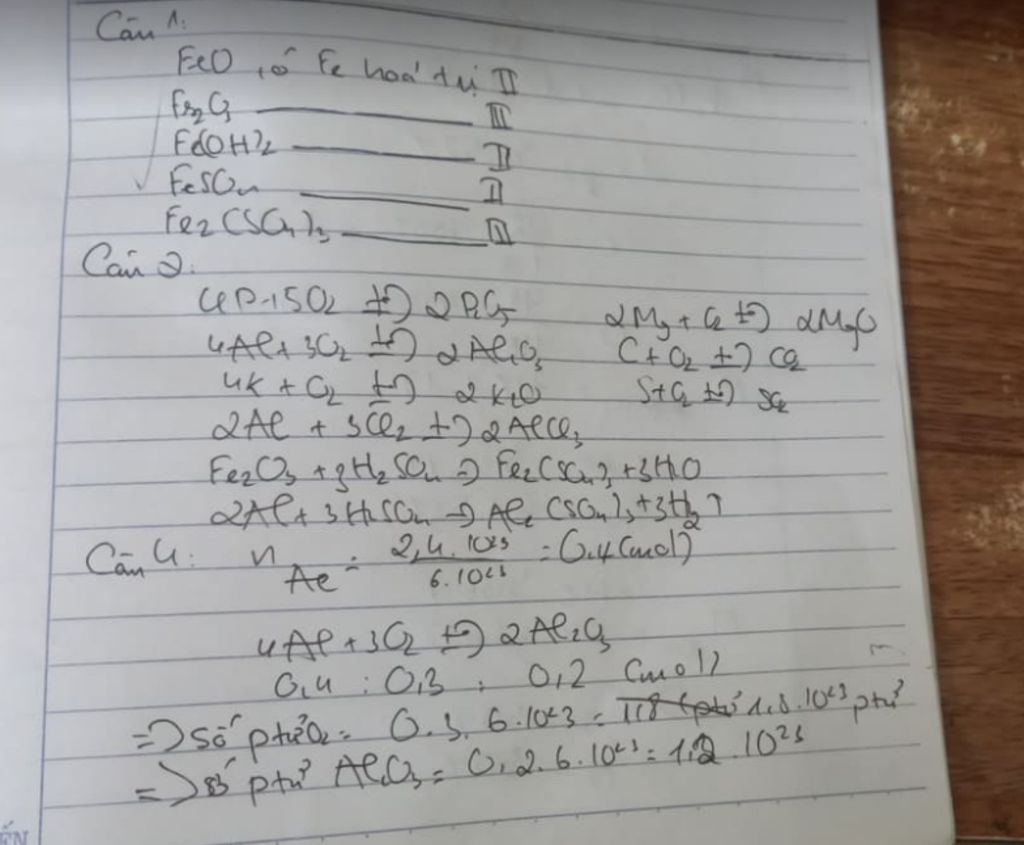 Câu 1:
FeO có Fe hoá trị II
Fe2O3 ——— III
Fe(OH)2 ——— II
FeSO4 ——— II
Fe2(SO4)3 ——— III
Câu 2:
4P + 5O2 t°→ 2P2O5 2Mg + O2 t°→ 2MgO
4Al + 3O2 t°→ 2Al2O3 C + O2 t°→ CO2
4K + O2 t°→ 2K2O S + O2 t°→ SO2
2Al + 3Cl2 t°→ 2AlCl3
Fe2O3 + 3H2SO4 → Fe2(SO4)3 + 3H2O
2Al + 3H2SO4 → Al2(SO4)3 + 3H2↑
Câu 4: nAl = 2,4.10^23 / 6.10^23 = 0,4 (mol)
4Al + 3O2 t°→ 2Al2O3
0,4 : 0,3 : 0,2 (mol)
=> số ptử O2 = 0,3.6.10^23 = 1,8.10^23 ptử
=> số ptử Al2O3 = 0,2.6.10^23 = 1,2.10^23